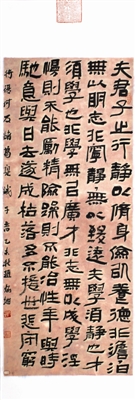 夫君子之行静以脩身儉以養德非澹泊
無以明志非寧静無以致遠夫學須静也才
須學也非學無以廣才非志無以成學淫
慢則不能勵精險躁則不能治性年與時
馳意與日去遂成枯落多不接世悲守窮
將復何及諸葛亮誡子書乙未秋